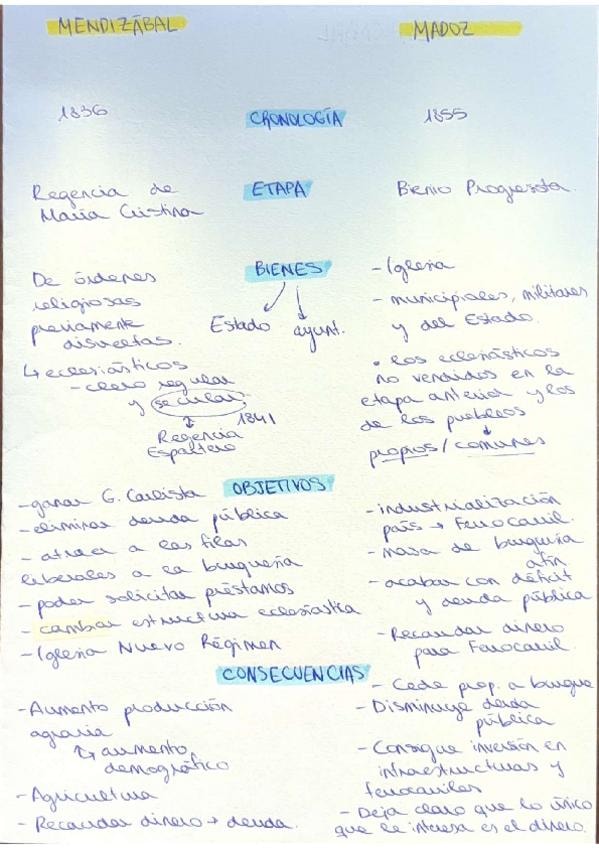 MENDIZÁBAL
MADOZ
1836
CRONOLOGÍA
1855
Regencia de
María Cristina
ETAPA
Bienio Progresista.
BIENES
Estado
ayunt.
De órdenes
religiosas
previamente
disueltas.
↳ eclesiásticos
- clero regular
y secular
1841
Regencia
Espartero
- Iglesia
- municipales, militares
y del Estado.
• los eclesiásticos
no vendidos en la
etapa anterior y los
de los pueblos
propios / comunes
OBJETIVOS
- ganar G. Carlista
- eliminar deuda pública
- atraer a las filas
liberales a la burguesía
- poder solicitar préstamos
- cambiar estructura eclesiástica
- Iglesia Nuevo Régimen
- industrialización
país → Ferrocarril.
- masa de burguesía
afín
- acabar con déficit
y deuda pública
- Recaudar dinero
para Ferrocarril.
CONSECUENCIAS
- Aumento producción
agraria
↳ aumento
demográfico
- Agricultura
- Recaudar dinero → deuda.
- Cede prop. a burgue
- Disminuye deuda
pública
- Consigue inversión en
infraestructuras y
ferrocarriles
- Deja claro que lo único
que le interesa es el dinero.